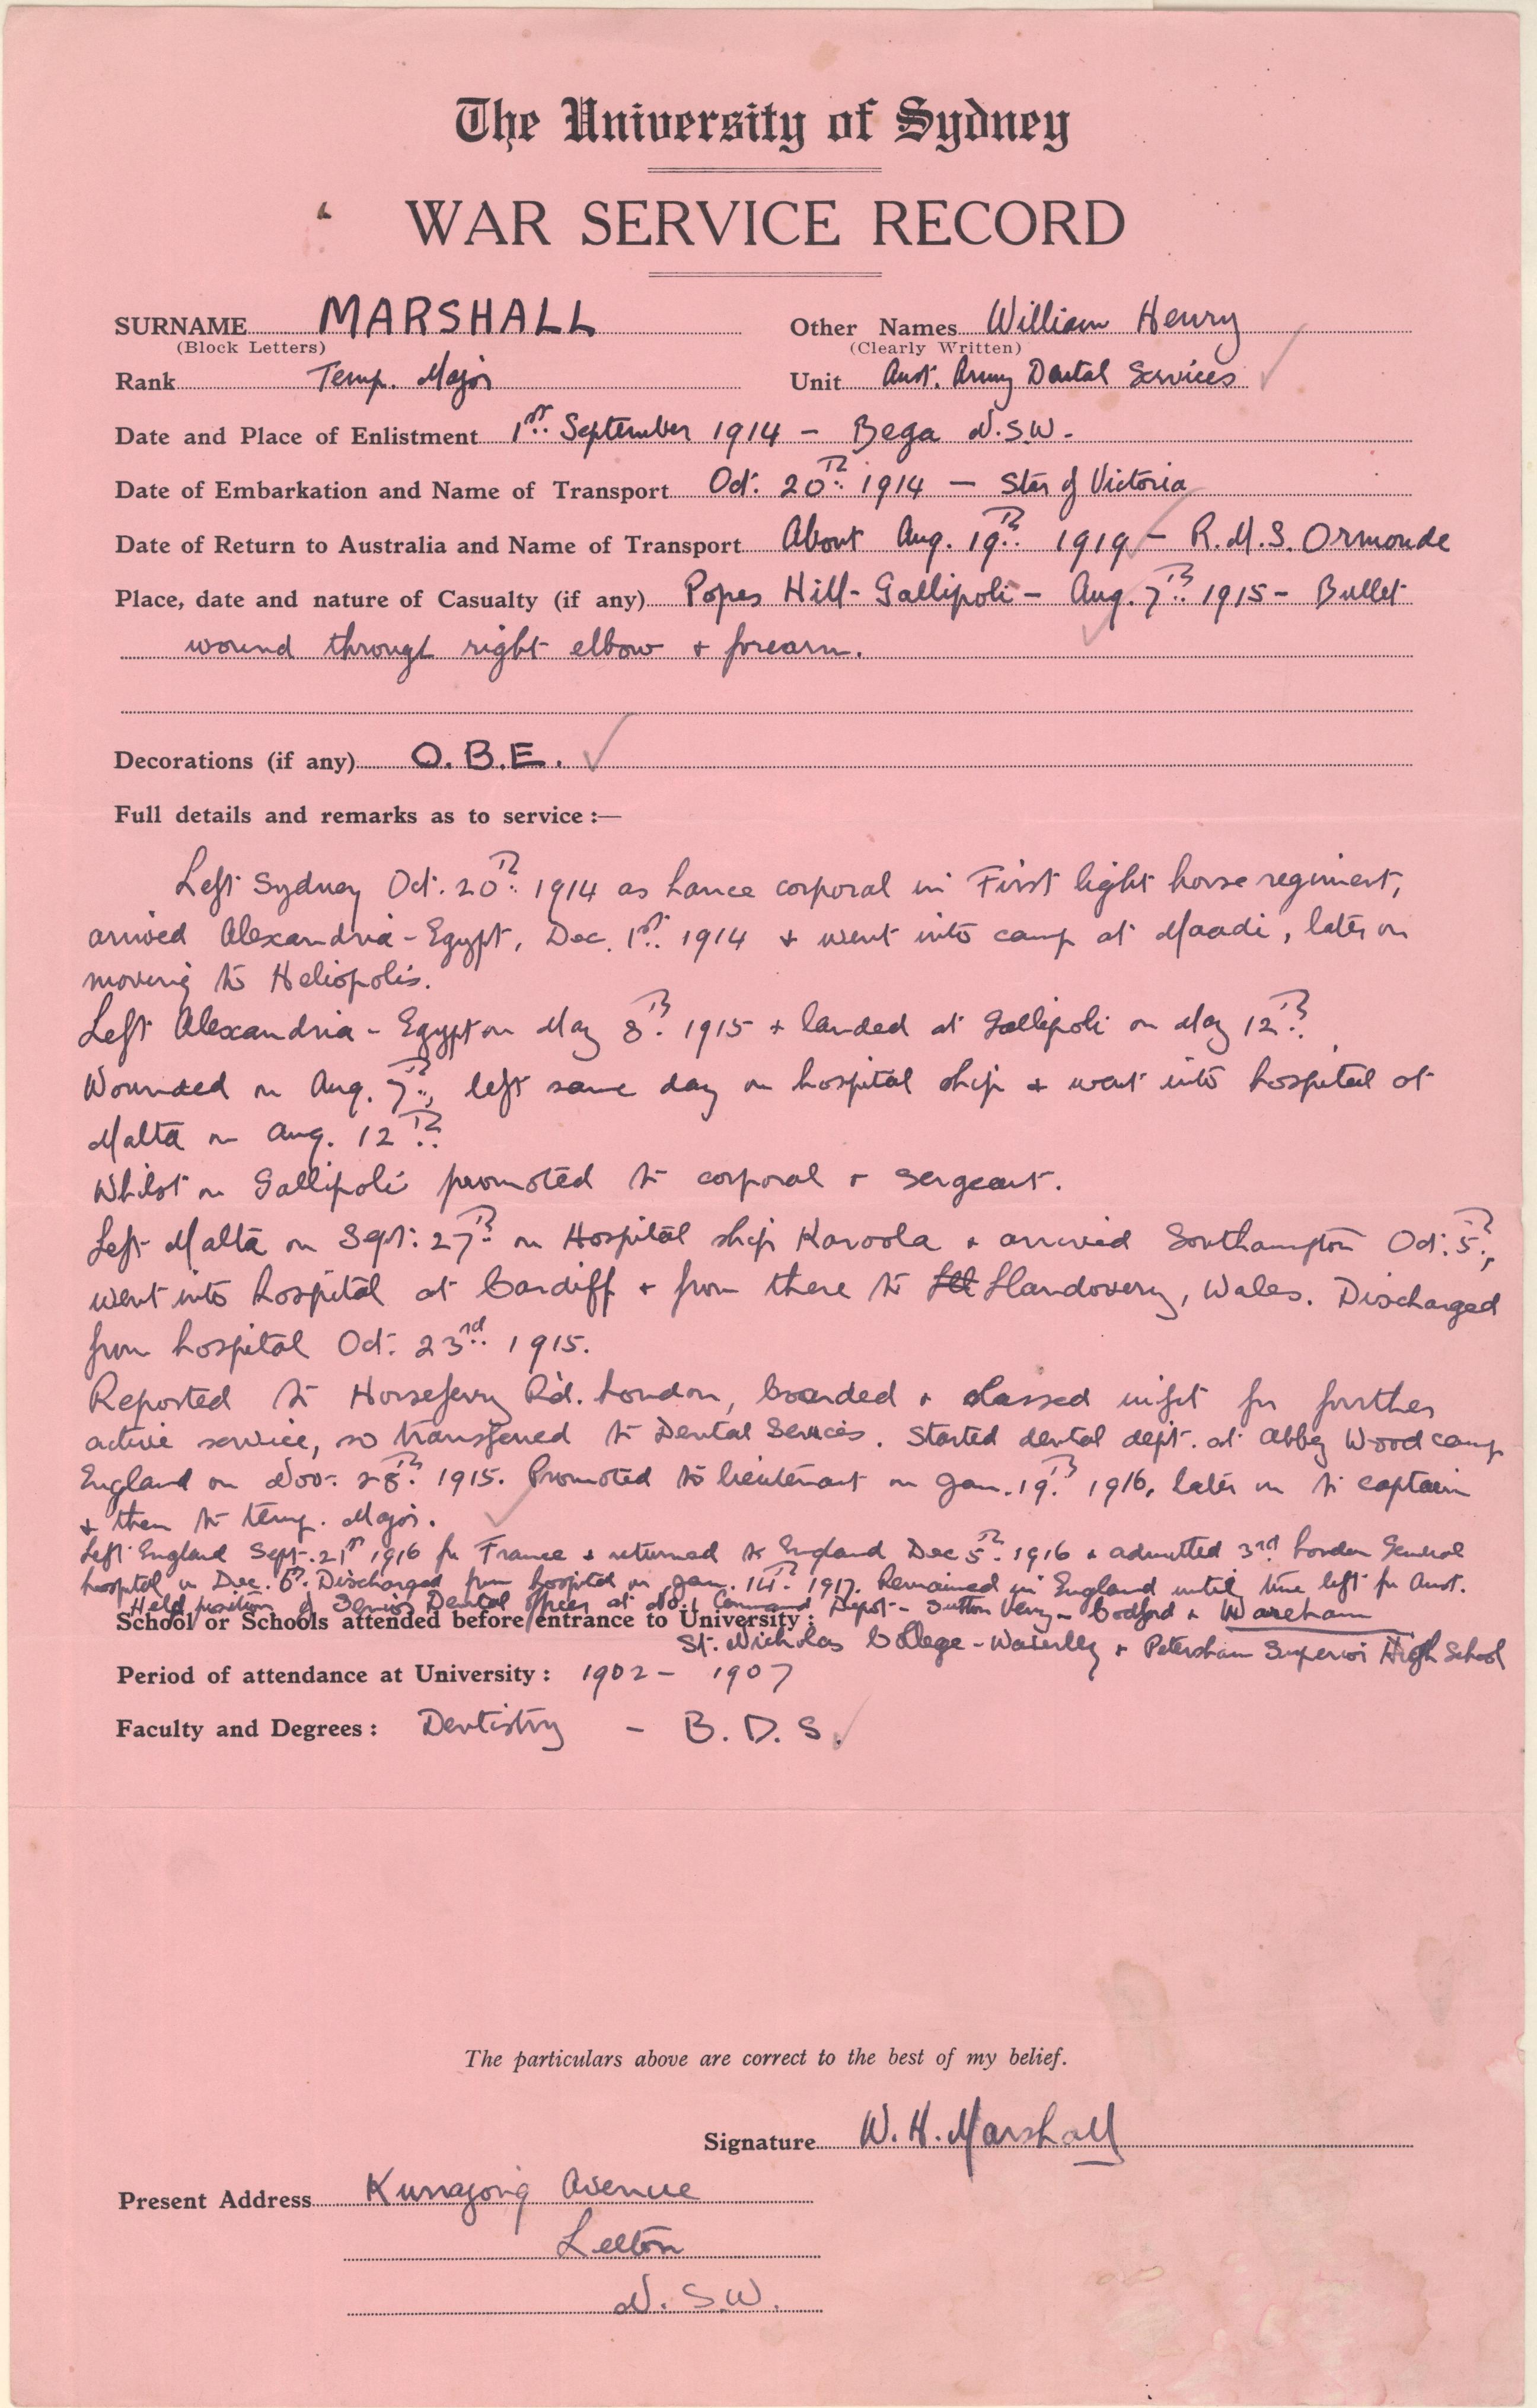 The University of Sydney
WAR SERVICE RECORD
SURNAME MARSHALL Other Names William Henry
(Block Letters) (Clearly Written)
Rank Temp. Major Unit Aust. Army Dental Services
Date and Place of Enlistment 1st September 1914 - Bega N.S.W.
Date of Embarkation and Name of Transport Oct. 20th 1914 - Star of Victoria
Date of Return to Australia and Name of Transport About Aug. 19th 1919 - R.M.S. Ormonde
Place, date and nature of Casualty (if any) Popes Hill - Gallipoli - Aug. 7th 1915 - Bullet
wound through right elbow & forearm.
Decorations (if any) O.B.E.
Full details and remarks as to service :—
Left Sydney Oct. 20th 1914 as Lance corporal in First light horse regiment,
arrived Alexandria - Egypt, Dec. 1st 1914 & went into camp at Maadi, later on
moving to Heliopolis.
Left Alexandria - Egypt on May 8th 1915 & landed at Gallipoli on May 12th.
Wounded on Aug. 7th, left same day on hospital ship & went into hospital at
Malta on Aug. 12th.
Whilst on Gallipoli promoted to corporal & sergeant.
Left Malta on Sept. 27th on Hospital ship Karoola & arrived Southampton Oct. 5th,
went into hospital at Cardiff & from there to Llandovery, Wales. Discharged
from hospital Oct. 23rd 1915.
Reported to Horseferry Rd. London, boarded & classed unfit for further
active service, so transferred to Dental Services. Started dental dept. at Abbey Wood camp
England on Nov. 28th 1915. Promoted to lieutenant on Jan. 19th 1916, later on to captain
& then to temp. Major.
Left England Sept. 21st 1916 for France & returned to England Dec 5th 1916 & admitted 3rd London General
hospital on Dec. 6th. Discharged from hospital on Jan. 14th 1917. Remained in England until time left for Aust.
Held position of Senior Dental Officer at No. 1 Command Depot - Sutton Veny - Codford & Wareham
School or Schools attended before entrance to University :
St. Nicholas College - Waverley & Petersham Superior High School
Period of attendance at University : 1902 - 1907
Faculty and Degrees : Dentistry - B.D.S.
The particulars above are correct to the best of my belief.
Signature W. H. Marshall
Present Address Kurrajong Avenue
Leeton
N.S.W.